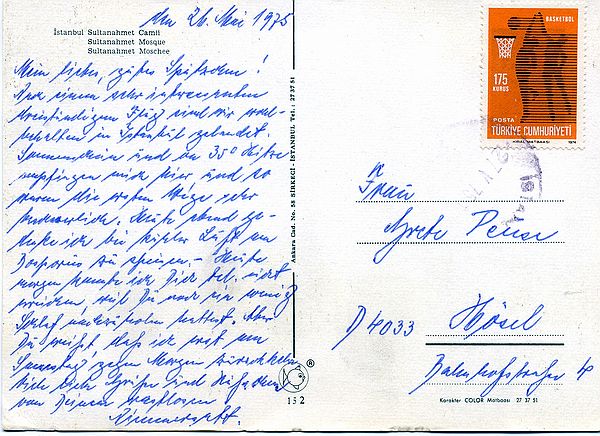 den 26. Mai 1975
İstanbul Sultanahmet Camii
Sultanahmet Mosque
Sultanahmet Moschee
Mein liebes, gutes
Nach einem sehr interessanten
Flug sind wir wohl-
behalten in Istanbul gelandet.
Sonnenschein und an 35° Hitze
empfingen mich hier und so
waren die ersten Wege sehr
Heute abend ge-
denke ich bei kühler Luft am
Bosporus zu speisen. - Heute
morgen konnte ich Dich tel. nicht
erreichen, weil Du noch ein wenig
Schlaf nachzuholen hattest. Aber
Du weißt daß ich erst am
Samstag gegen Morgen zurückkehre.
Dich Grüßen und
von Deinem
Ankara Cad. No. 58 SİRKECİ - İSTANBUL Tel.: 27 37 51
®
152
BASKETBOL
175
KURUŞ
POSTA
TÜRKİYE CUMHURİYETİ
KIRAL MATBAASI 1974
Frau
Grete Pense
D 4033 Hösel
Bahnhofstraße 4
Karakter COLOR Matbaası 27 37 51